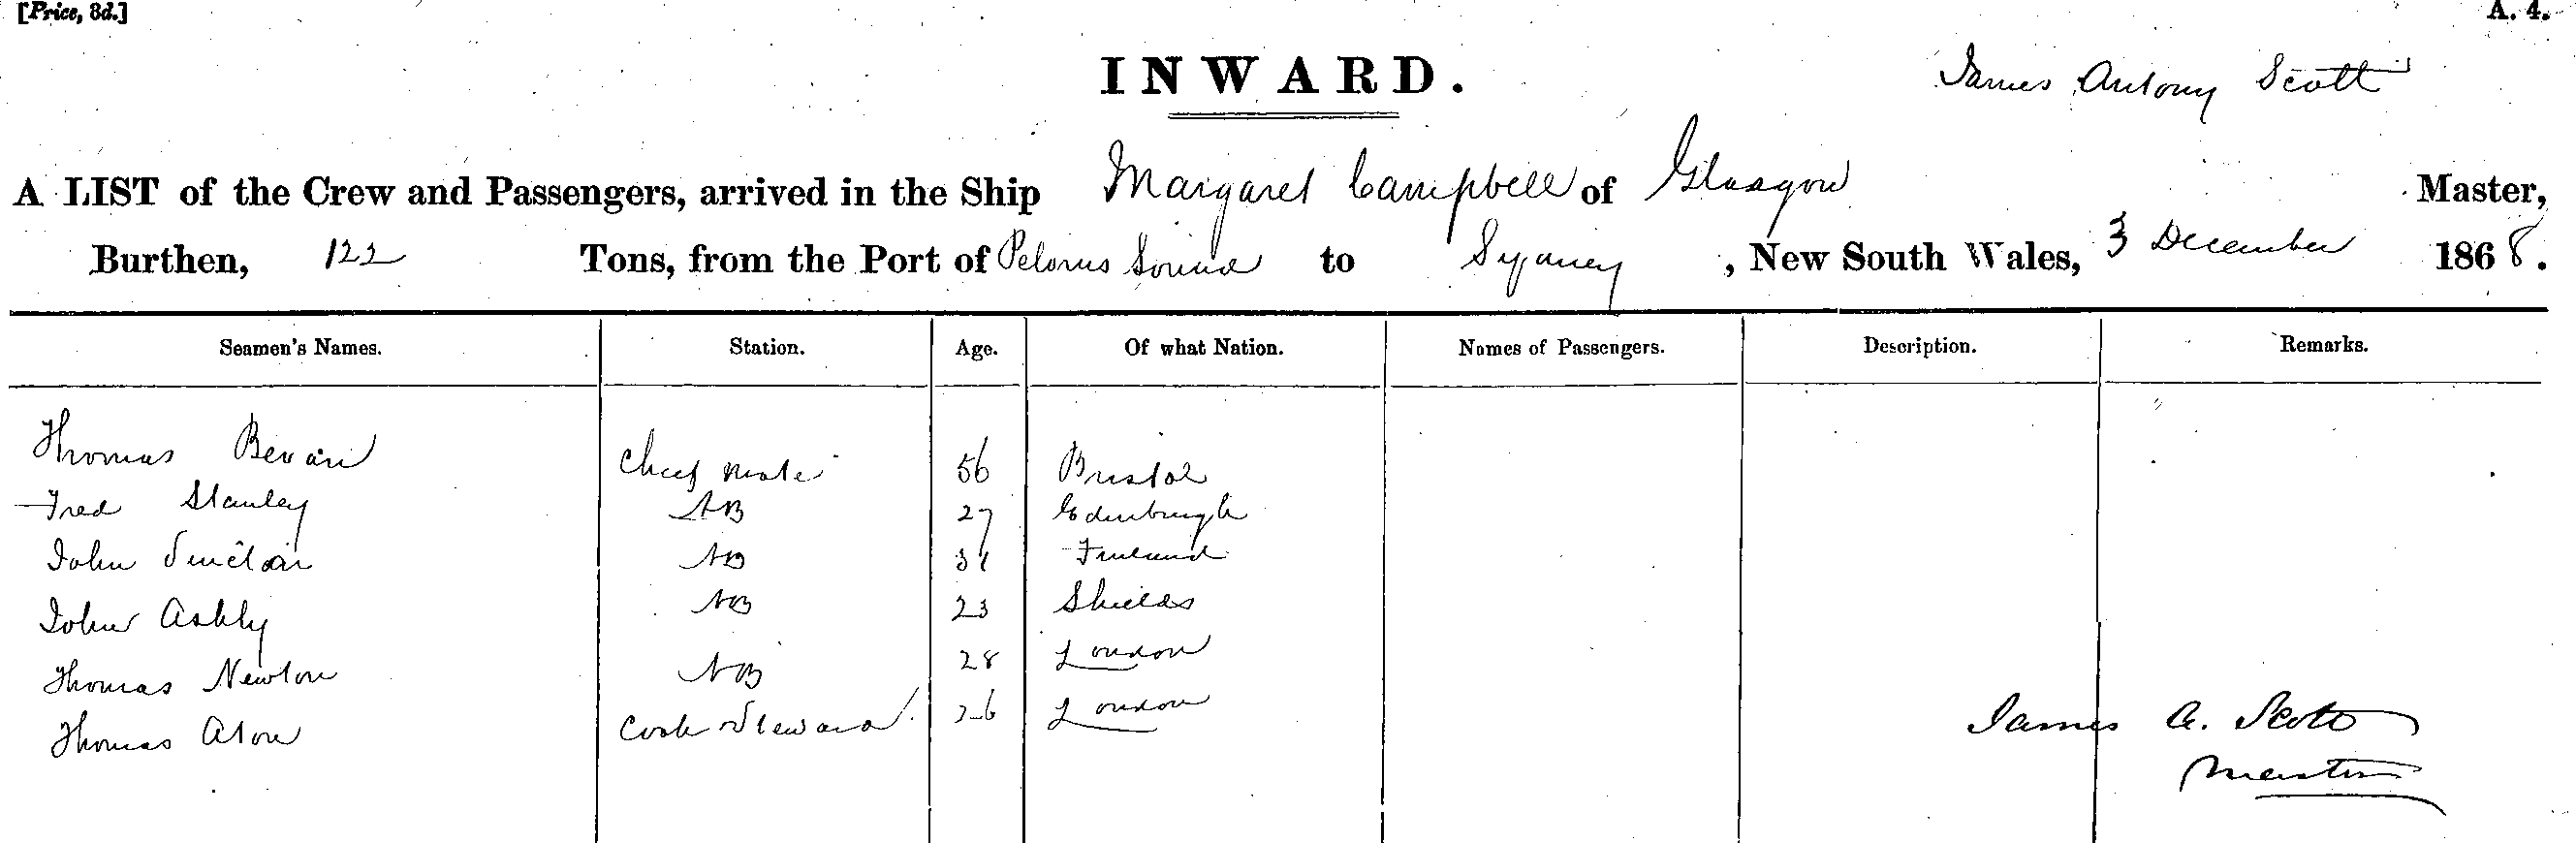 [Price, 3d.] A. 4.
INWARD. James Antony Scott
A LIST of the Crew and Passengers, arrived in the Ship Margaret Campbell of Glasgow Master,
Burthen, 122 Tons, from the Port of Pelorus Sound to Sydney, New South Wales, 3 December 1868.
Seamen's Names. Station. Age. Of what Nation. Names of Passengers. Description. Remarks.
Thomas Bevan Chief Mate 56 Bristol
Fred Stanley AB 27 Edinburgh
John Sinclair AB 31 Finland
John Ashly AB 23 Shields
Thomas Newton AB 28 London
Thomas Cook Steward 26 London
James A. Scott
Master